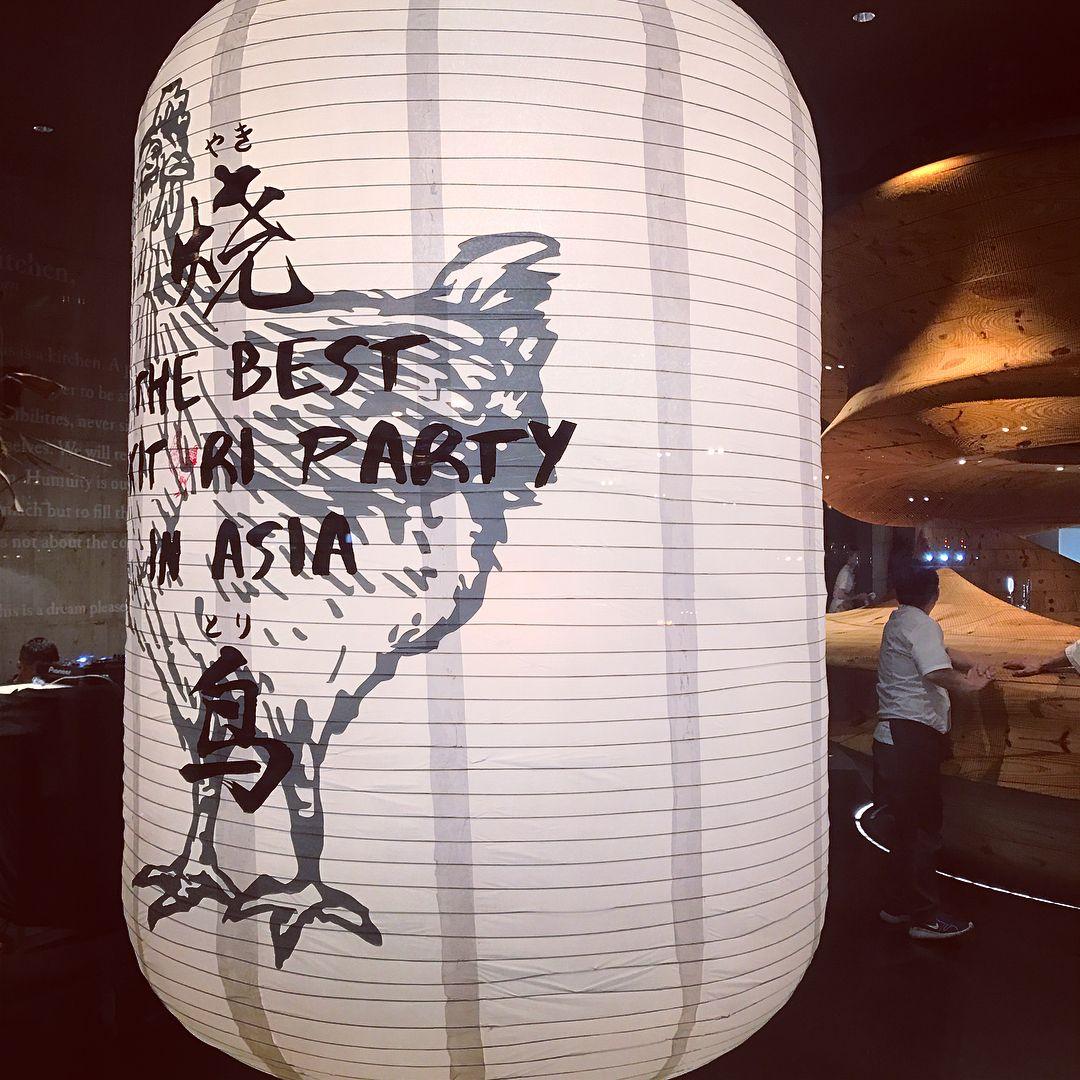 やき
烧
THE BEST
KIT RI PARTY
IN ASIA
とり
鸟
itchen,
is is a kitchen. A
er to be a
ibilities, never s
selves. We will re
Humility is ou
much but to fill th
is not about the co
his is a dream please
Pioneer